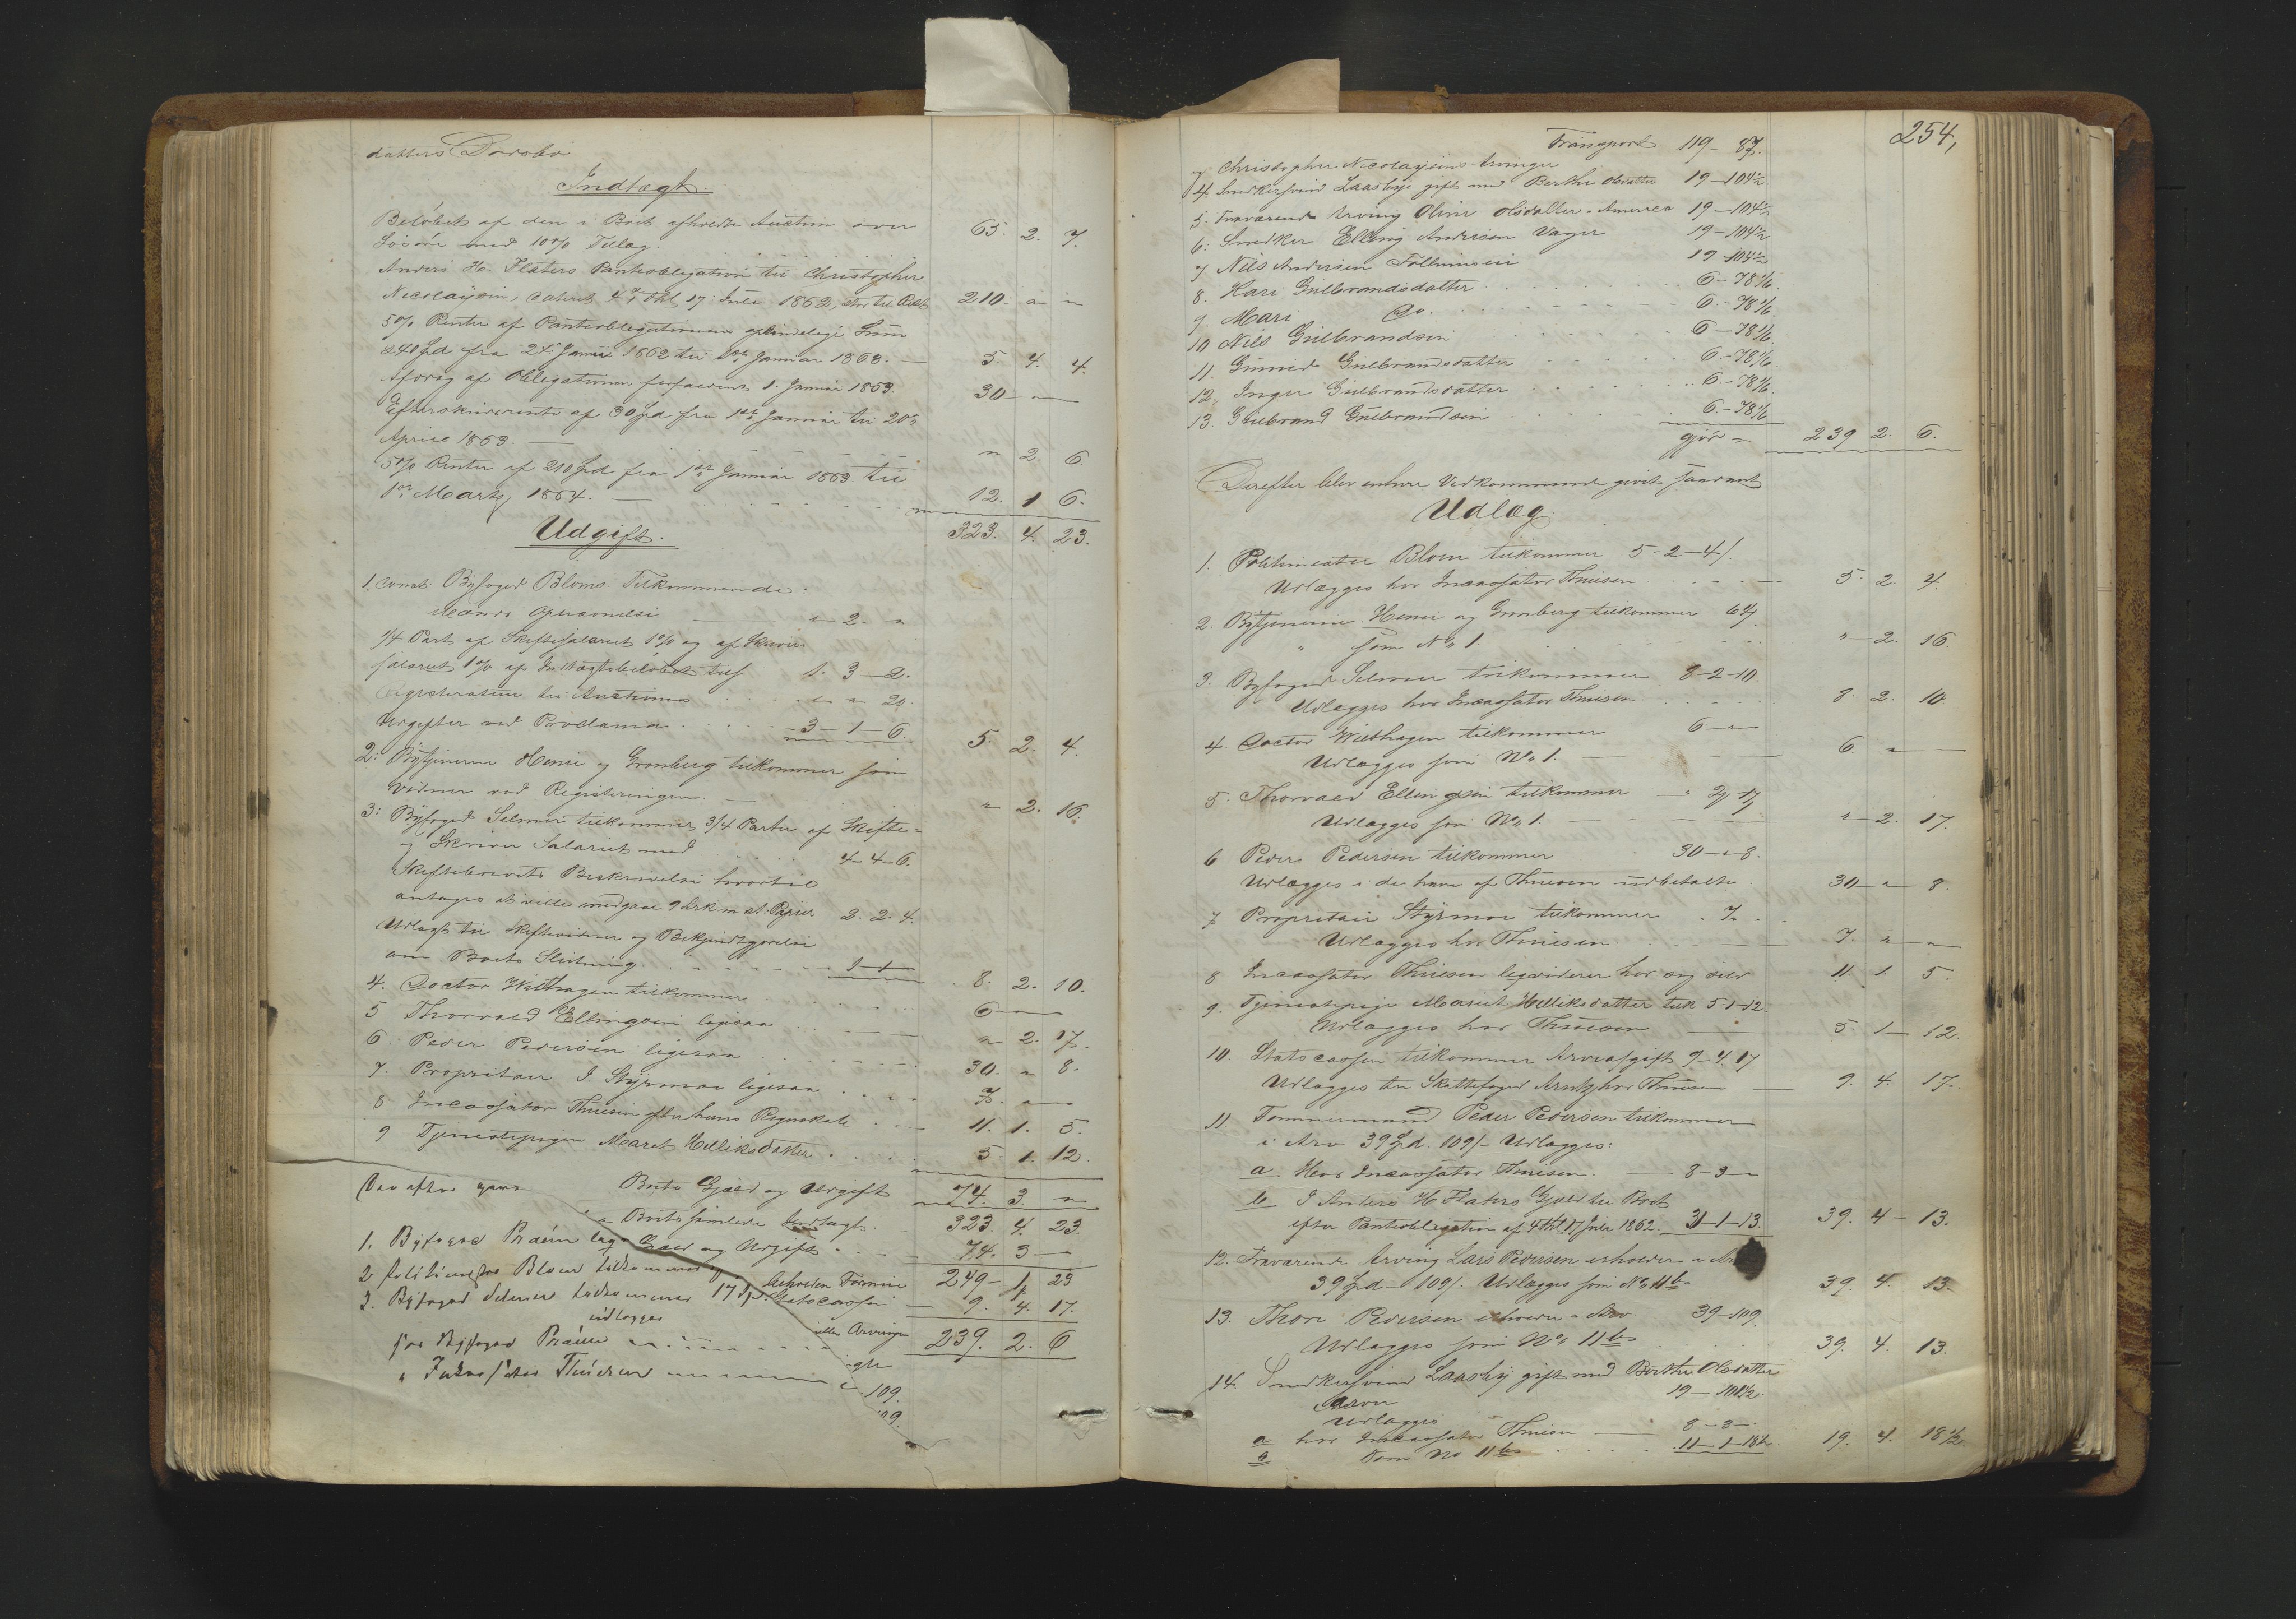 datters Dødsbo
Indtægt.
Beløbet af den i Boet afholdte Auction over
Løsøre med 10% Tillæg. 65. 2. 7.
Anders H. Flaters Panteobligation til Christopher
Nicolaysen, dateret 4de, thl. 17 Juli 1862, stor til Rest 210. " "
5% Renter af Panteobligationens oprindelige Sum
240 Spd fra 24de Juni 1862 til 1ste Januar 1863. 5. 4. 4.
Afdrag af Obligationen forfaldent 1. Januar 1863. 30 — "
Efterskudsrente af 30 Spd fra 1ste Januar til 20de
April 1863. " 2. 6.
5% Renter af 210 Spd fra 1ste Januar 1863 til
1ste Marts 1864. 12. 1 6.
323. 4. 23.
Udgift.
1. const. Byfoged Bloms Tilkommende:
 " 2. "
1/4 Part af Skiftesalariet 1% og af Skriver-
salariet 1% af Indtægtsbeløbet tils 1. 3 — 2.
 til Auctionen " " 20.
Udgifter ved Proclama 3 — 1 — 6. 5. 2. 4.
2: Bytjenerne Henri og Gronberg tilkommer som
Vidner ved Registreringen " 2. 16.
3: Byfoged Selmer tilkommer 3/4 Parter af Skifte-
og Skriver Salariet med 4 4 6.
Skiftebrevets Beskrivelse hvortil
antages at ville medgaae 9 Ark m st. Papir 2. 2. 4.
Udlagt til Skiftevidner og Bekjendtgjørelse
om Boets Slutning 1 1 8. 2. 10.
4. Doctor Wilthagen tilkommer 6 — "
5 Thorvald Ellingsen ligesaa " 2. 17.
6 Peder Pedersen ligesaa 30. " 8.
7. Propritair J. Styrmoe ligesaa 7. " "
8 Incassator Thuesen efter hans Regnskab 11. 1. 5.
9 Tjenestepigen Maret Helliksdatter 5. 1. 12.
 Boets Gjæld og Udgift 74. 3 "
 Boets samlede Indtægt 323. 4. 23.
 Gjæld og Udgift 74. 3 —
 Formue 249 — 1. 23
 Statscassen 9. 4. 17.
 Arvinger 239. 2. 6
1. Byfoged Præm
2 Politimester Blom tilkommer
3. Byfoged Selmer tilkommer 17
udlægges
hos Byfoged Præm
" Inkassator Thuesen
109.
254,
Transport 119 — 87.
og Christopher Nicolaysens Arvinger
4. Snedkersvend Laasbye gift med Berthe Olsdatter 19 — 104 1/2
5. Fraværende Arving Oline Olsdatter i America 19 — 104 1/2
6: Snedker Elling Andersen Vager 19 — 104 1/2
7 Nils Andersen 19 — 104 1/2
8. Kari Gulbrandsdatter 6 — 78 1/6.
9. Mari Do. 6. — 78 1/6.
10 Nils Gulbrandsen 6 — 78 1/6.
11. Gunild Gulbrandsdatter 6. — 78 1/6.
12. Inger Gulbrandsdatter 6. — 78 1/6
13. Gulbrand Gulbrandsen 6. — 78 1/6
gjør = 239 2. 6.
Derefter blev enhver Vedkommende givet saadant
Udlæg.
1. Politimester Blom tilkommer 5 — 2 — 4
Udlægges hos Incassator Thuesen 5. 2. 4.
2. Bytjenerne Henri og Gronberg tilkommer 64
" som No 1. " — 2. 16.
3. Byfoged Selmer tilkommer 8 — 2 — 10.
Udlægges hos Incassator Thuesen 8. 2. 10.
4. Doctor Wilthagen tilkommer 6 — "
Udlægges som No 1. 6. " —
5. Thorvald Ellingsen tilkommer " 2, 17
Udlægges som No 1. " — 2. 17.
6 Peder Pedersen tilkommer 30 — " — 8.
Udlægges i de ham af Thuesen udbetalte 30 — " — 8.
7 Propritair Styrmoe tilkommer 7.
Udlægges hos Thuesen 7. " — "
8 Incassator Thuesen liqviderer hos sig selv 11. 1. 5.
9. Tjenestepige Maret Helliksdatter tilk. 5-1-12.
Udlægges hos Thuesen 5. 1 — 12.
10. Statscassen tilkommer Arveafgift 9 — 4. 17
Udlægges til Skattefoged Arntz hos Thuesen 9. 4. 17.
11 Tømmermand Peder Pedersen tilkommer
i Arv 39 Spd 109/ — Udlægges:
a Hos Incassator Thuesen. 8 — 3 —
b I Anders H Flaters Gjæld til Boet
efter Panteobligation af 4 thl. 17 Juli 1862. 31 — 1 — 13. 39. 4 — 13.
12. Fraværende Arving Lars Pedersen erholder i Arv
39 Spd — 109/. Udlægges som No 11 b 39. 4. 13.
13. Thore Pedersen erholder i Arv 39 — 109.
Udlægges som No 11 b 39. 4. 13.
14. Snedkersvend Laasby gift med Berthe Olsdatter
Arver 19 — 104 1/2.
Udlægges
a hos Incassator Thuesen 8 — 3 —
b Som No 11 b 11 — 1 — 18 1/2. 19. 4. 18 1/2.